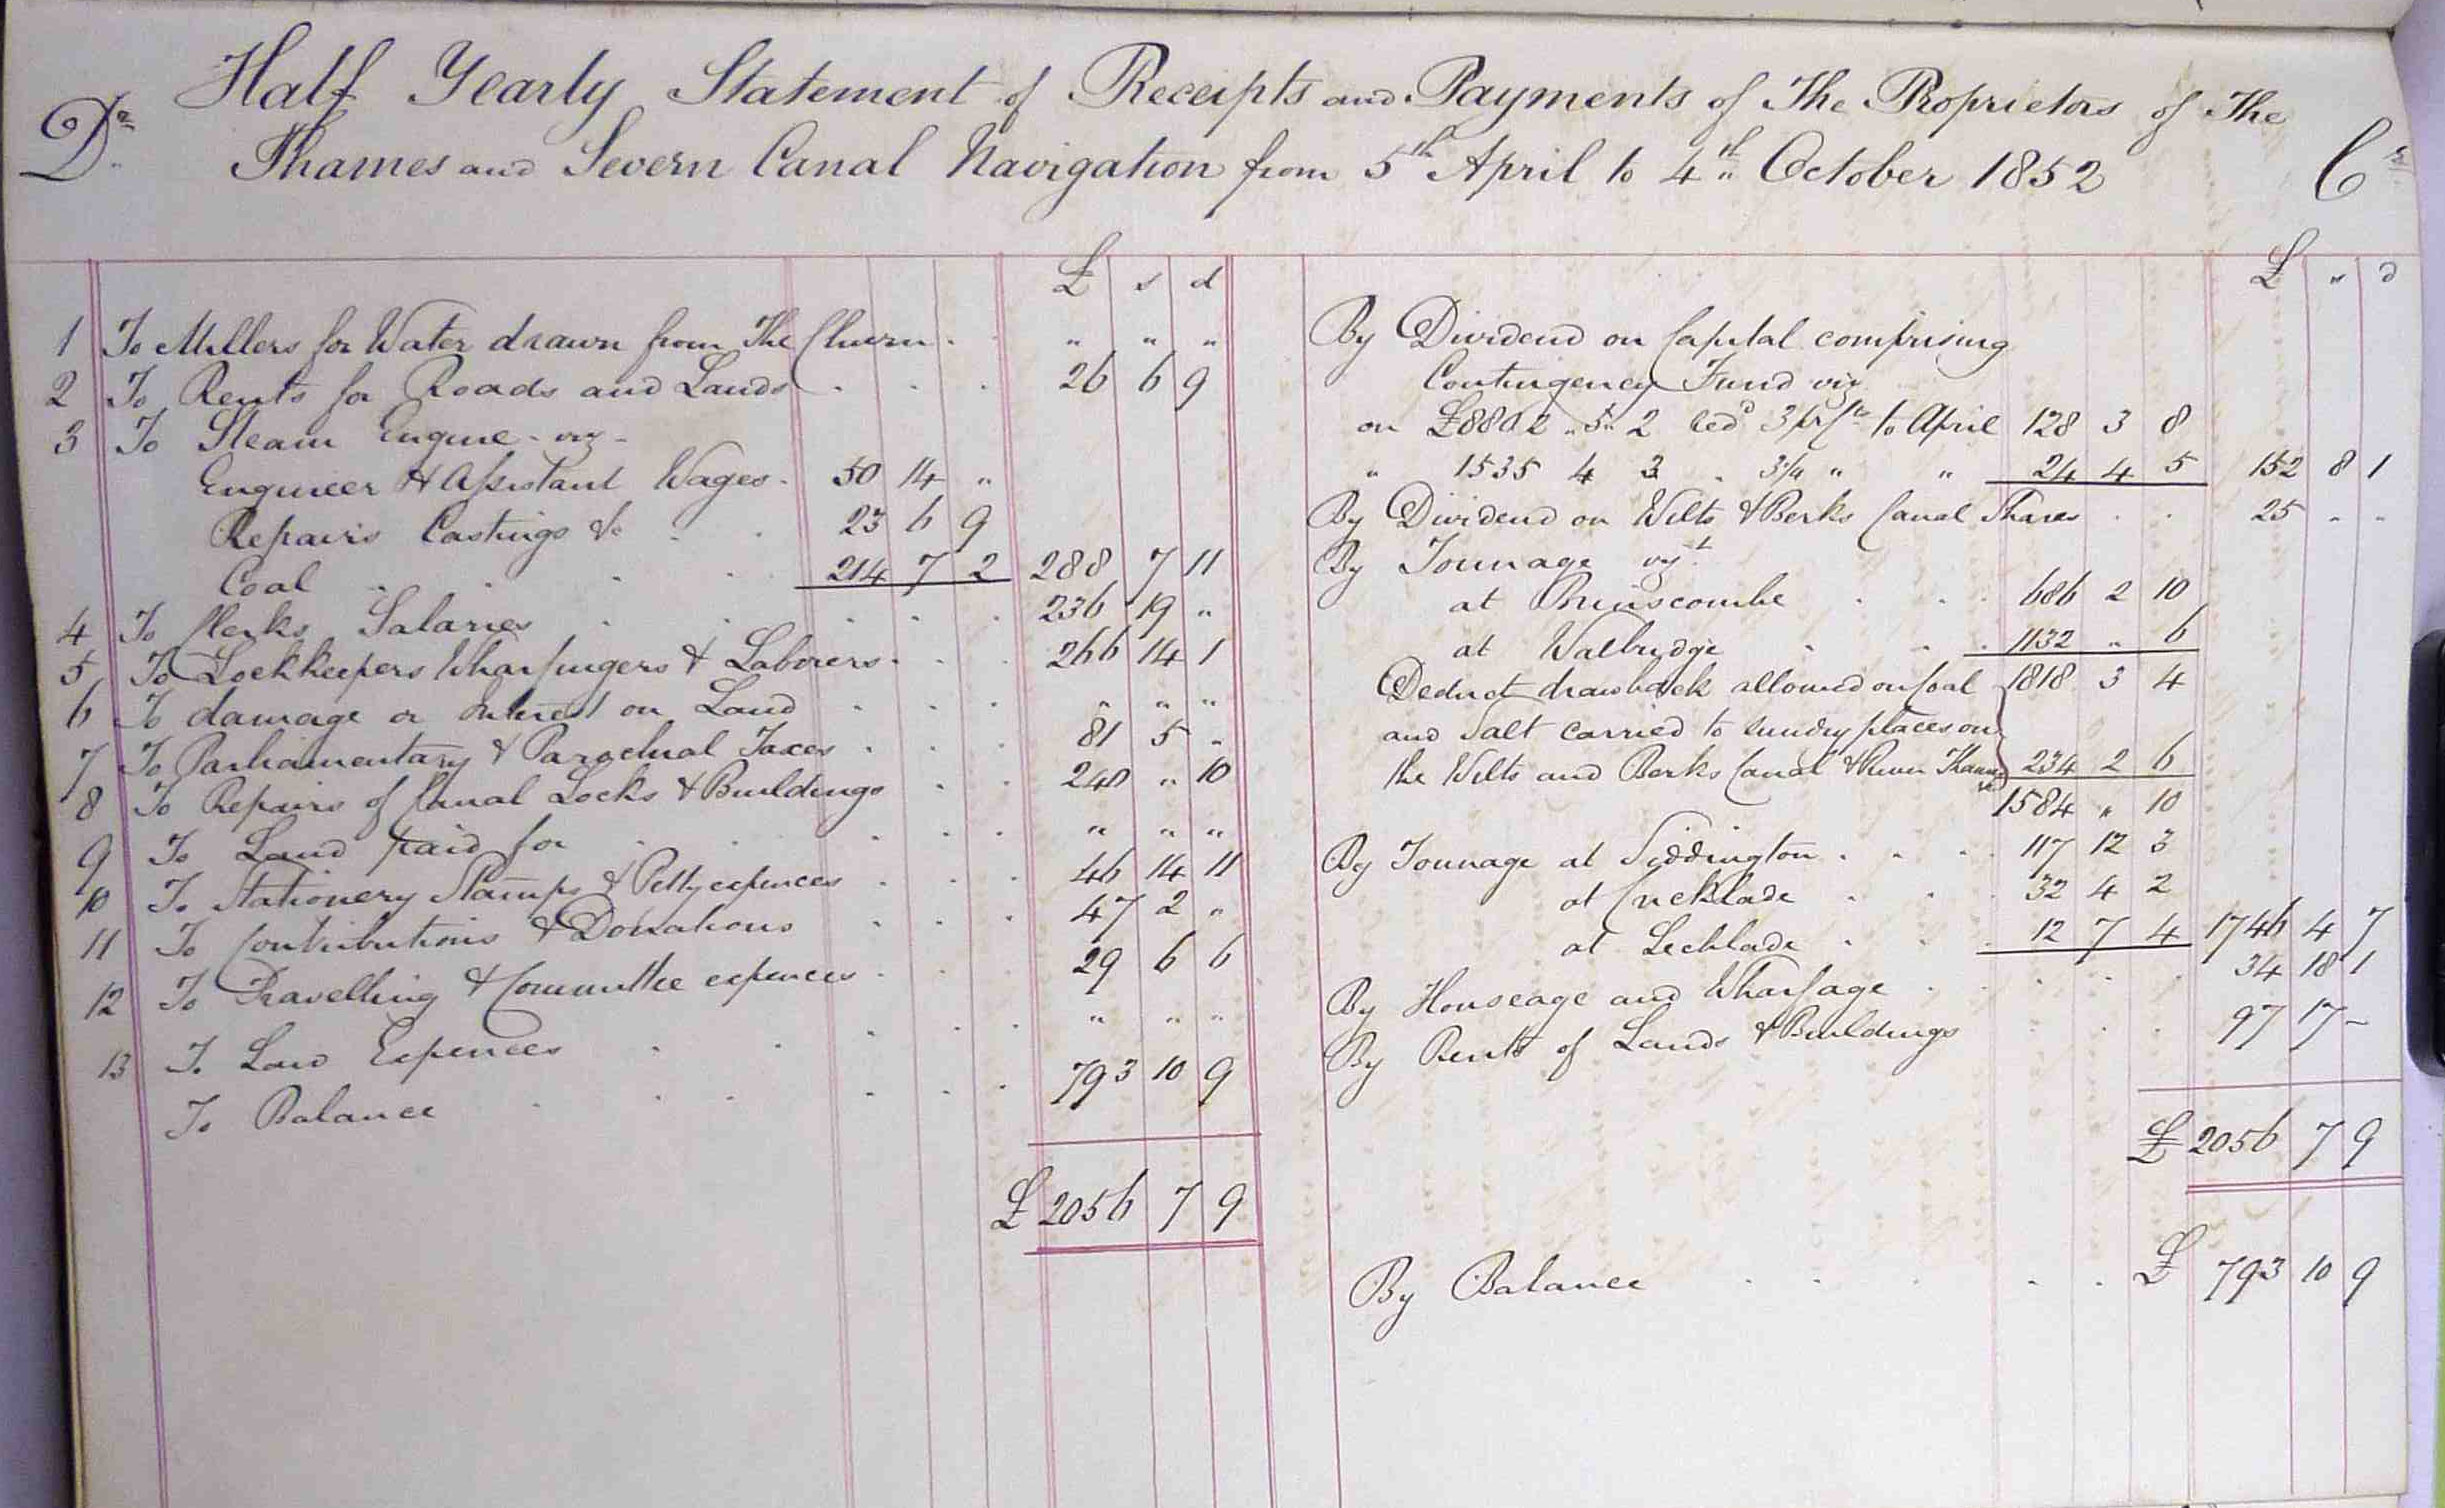 Half Yearly Statement of Receipts and Payments of The Proprietors of The
Dr. Thames and Severn Canal Navigation from 5th April to 4th October 1852 Cr
£ s d
1 To Millers for Water drawn from The Churn . . " " "
2 To Rents for Roads and Lands . . . 26 6 9
3 To Steam Engine - viz -
Engineer & Assistant Wages . 50 14 "
Repairs Castings &c . . 23 6 9
Coal . . . . 214 7 2 288 7 11
4 To Clerks Salaries . . . . . 236 19 "
5 To Lockkeepers Wharfingers & Laborers . . . 266 14 1
6 To damage or Interest on Land . . . " " "
7 To Parliamentary & Parochial Taxes . . . 81 5 "
8 To Repairs of Canal Locks & Buildings . . 240 " 10
9 To Land paid for . . . . . " " "
10 To Stationery Stamps & Petty expences . . . 46 14 11
11 To Contributions & Donations . . . 47 2 "
12 To Travelling & Committee expences . . . 29 6 6
13 To Law Expences . . . . . " " "
To Balance . . . . . . 793 10 9
£ 2056 7 9
£ " d
By Dividend on Capital comprising
Contingency Fund viz
on £8802 " 5 " 2 Red 3 pr Ct to April 128 3 8
" 1535 4 3 . 3¼ " " 24 4 5 152 8 1
By Dividend on Wilts & Berks Canal Shares . . 25 " "
By Tonnage viz
at Brimscombe . . . 686 2 10
at Walbridge . . . 1132 " 6
Deduct drawback allowed on Coal 1818 3 4
and Salt carried to sundry places on
the Wilts and Berks Canal & River Thames 234 2 6
1584 " 10
By Tonnage at Siddington . . . 117 12 3
at Cricklade . . . 32 4 2
at Lechlade . . . 12 7 4 1746 4 7
By Houseage and Wharfage . . . . . 34 18 1
By Rents of Lands & Buildings . . . 97 17 -
£ 2056 7 9
By Balance . . . . . £ 793 10 9